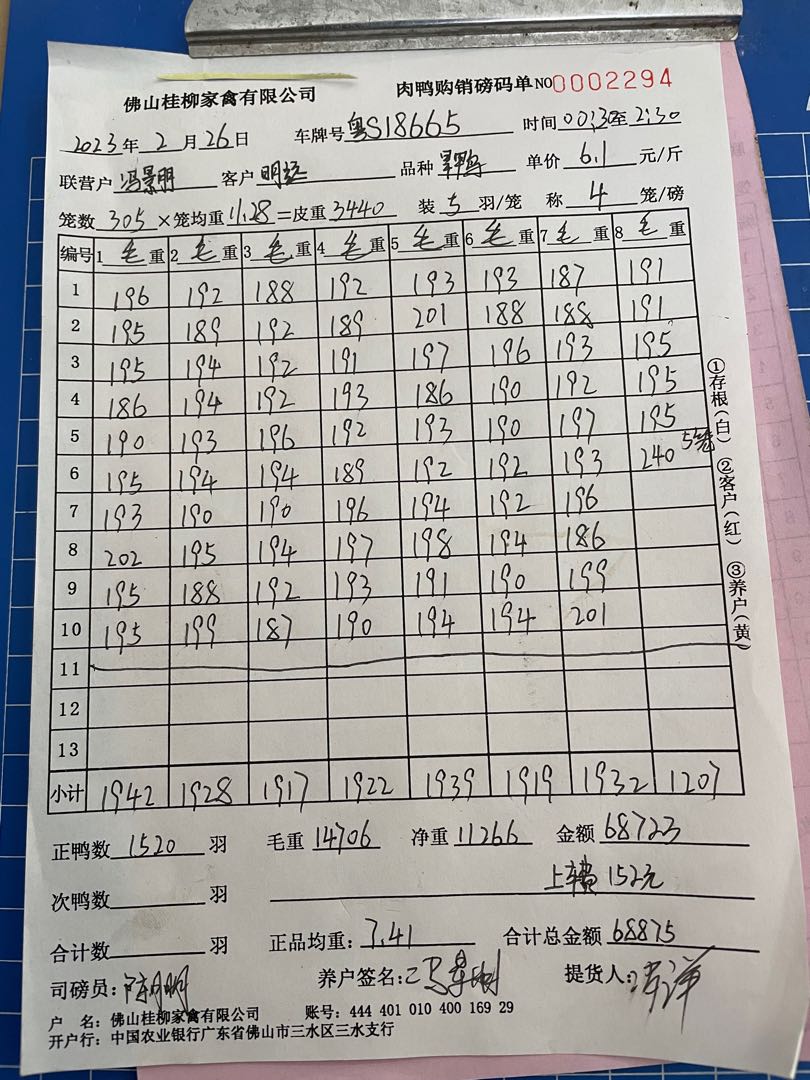 佛山桂柳家禽有限公司 肉鸭购销磅码单 NO 0002294
2023年2月26日 车牌号 粤S18665 时间 00:30至2:30
联营户 冯景明 客户 明经 品种 单价 6.1 元/斤
笼数 305 ×笼均重 11.28 =皮重 3440 装 5 羽/笼 称 4 笼/磅
编号 1 毛重 2 毛重 3 毛重 4 毛重 5 毛重 6 毛重 7 毛重 8 毛重
1 196 192 188 192 193 193 187 191
2 195 189 192 189 201 188 188 191
3 195 194 192 191 197 196 193 195
4 186 194 192 193 186 190 192 195
5 190 193 196 192 193 190 197 195
6 195 194 194 189 192 192 193 240 5笼
7 193 190 190 196 194 192 196
8 202 195 194 197 198 194 186
9 195 188 192 193 191 190 199
10 195 199 187 190 194 194 201
11
12
13
小计 1942 1928 1917 1922 1939 1919 1932 1207
①存根(白) ②客户(红) ③养户(黄)
正鸭数 1520 羽 毛重 14706 净重 11266 金额 68723
次鸭数 羽 上车费 152元
合计数 羽 正品均重: 7.41 合计总金额 68875
司磅员: 养户签名: 提货人:
户 名: 佛山桂柳家禽有限公司 账号: 444 401 010 400 169 29
开户行: 中国农业银行广东省佛山市三水区三水支行